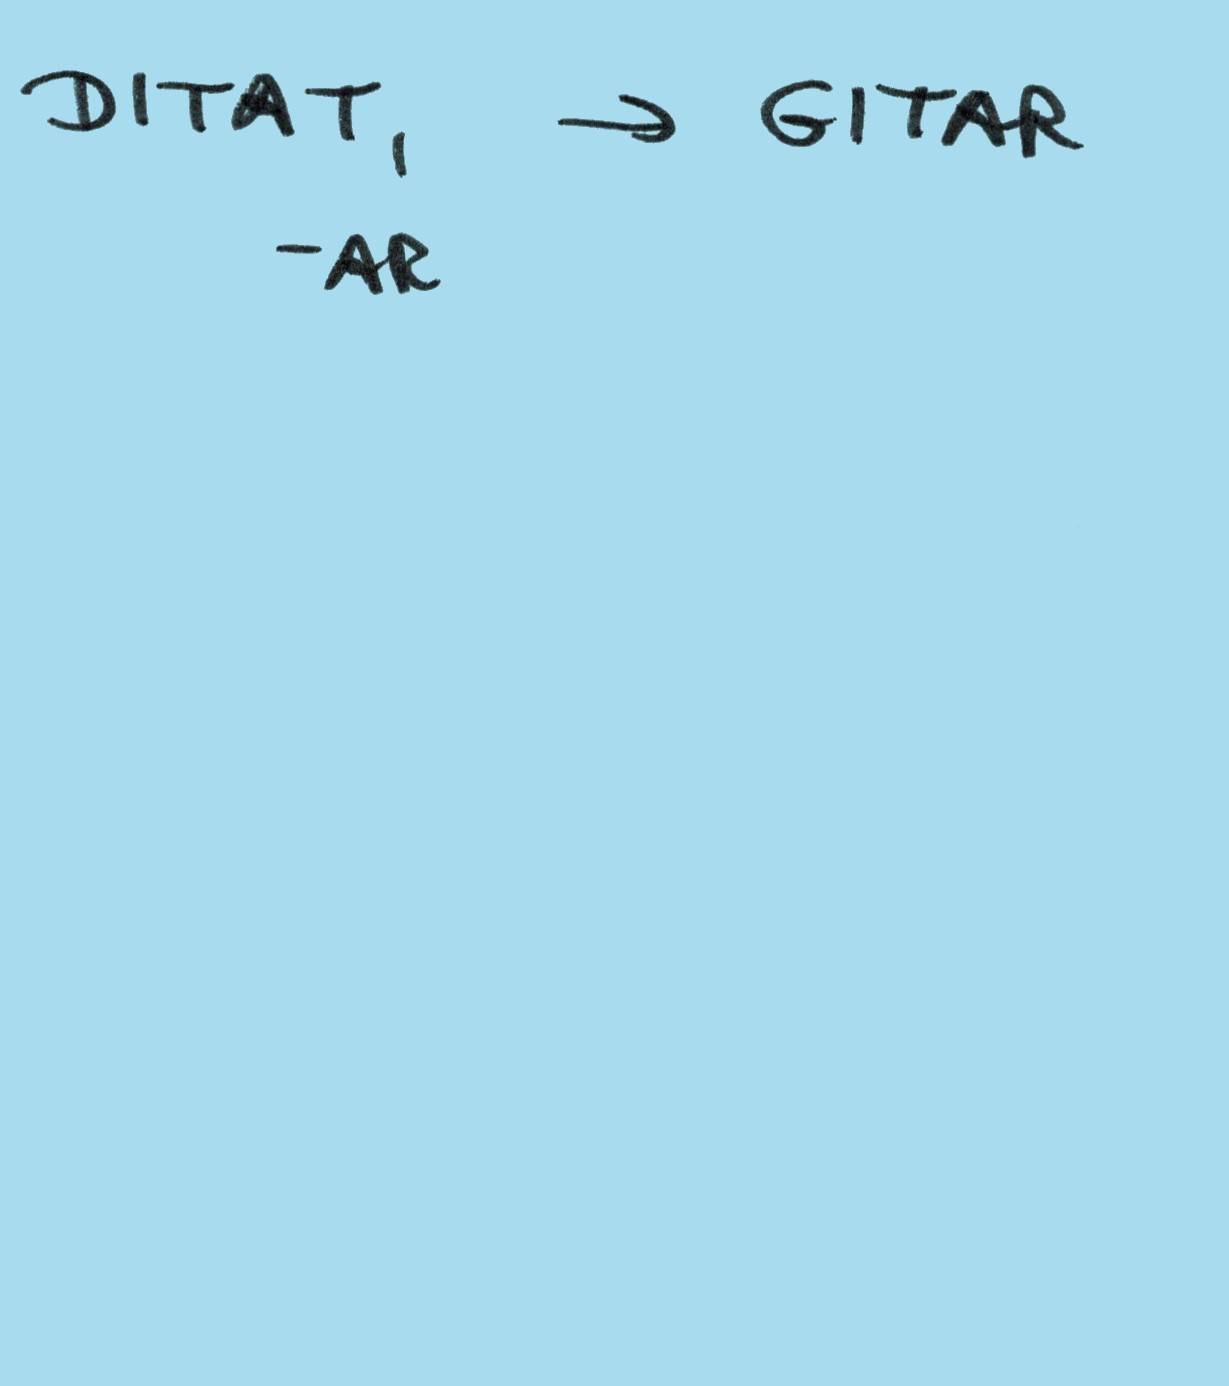 DITAT, → GITAR
-AR